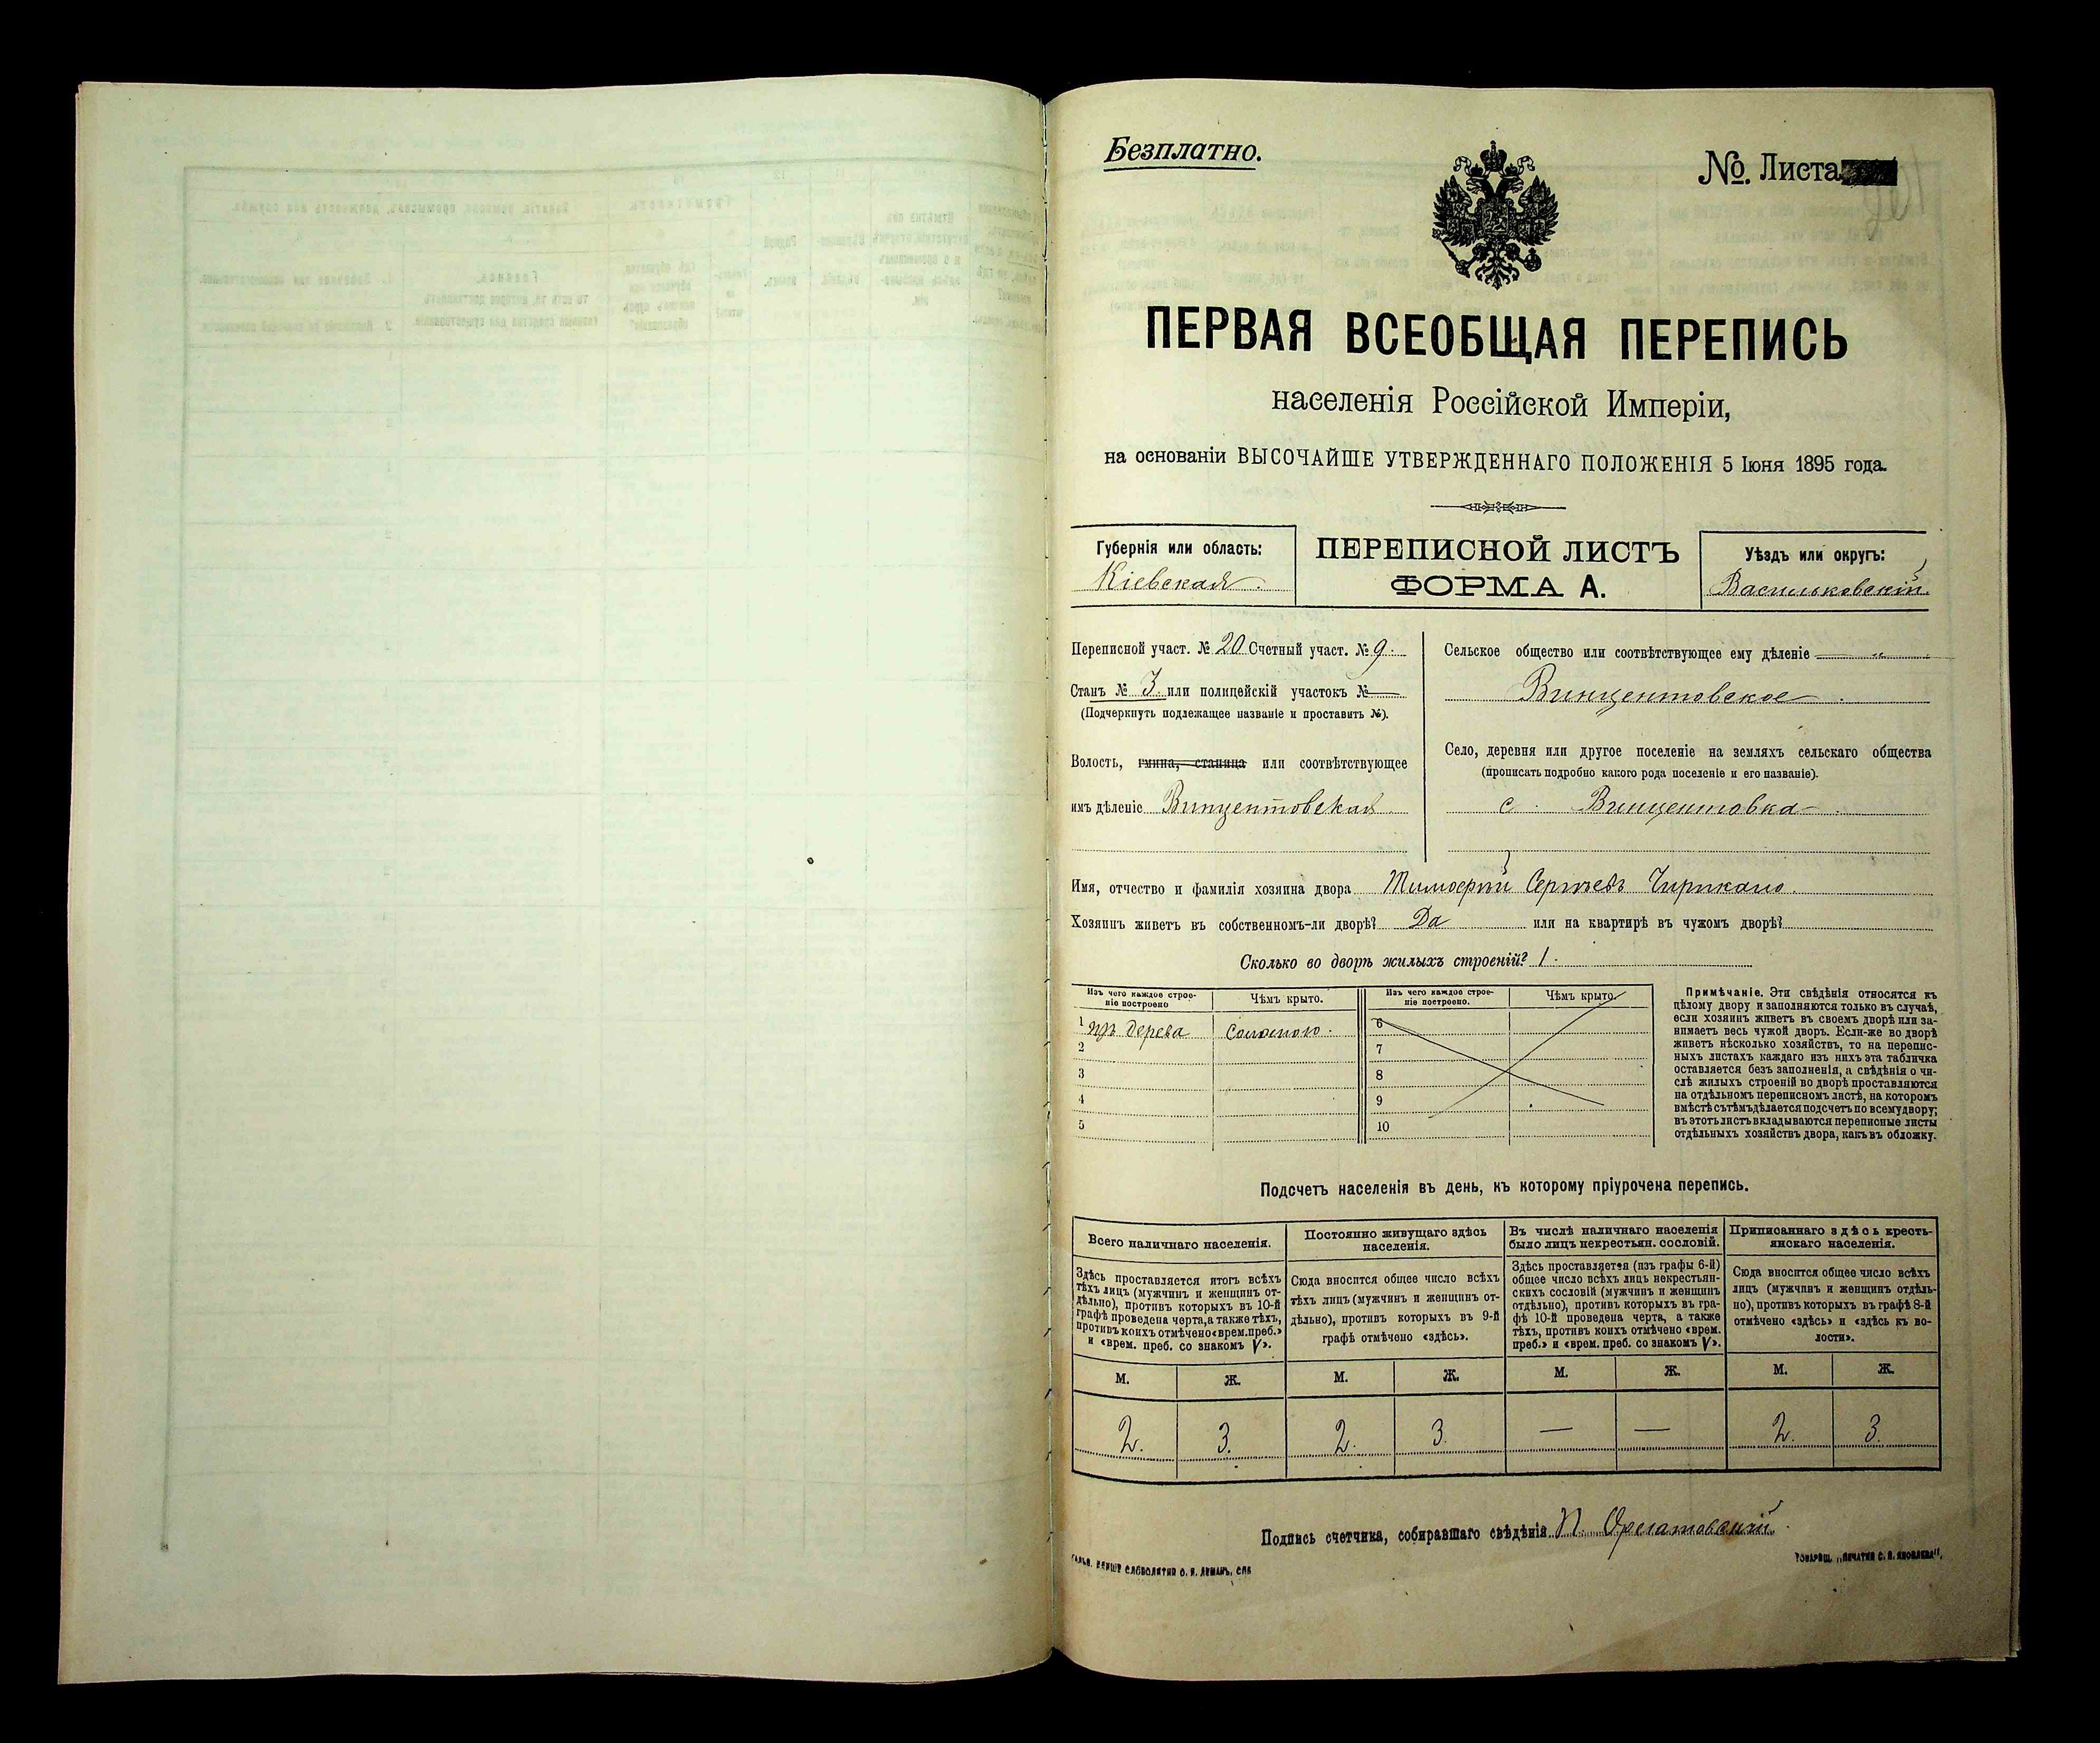 Безплатно.
№. Листа
ПЕРВАЯ ВСЕОБЩАЯ ПЕРЕПИСЬ
населенія Россійской Имперіи,
на основаніи ВЫСОЧАЙШЕ УТВЕРЖДЕННАГО ПОЛОЖЕНІЯ 5 Іюня 1895 года.
Губернія или область:
Кіевская
ПЕРЕПИСНОЙ ЛИСТЪ
ФОРМА А.
Уѣздъ или округъ:
Васильковскій
Переписной участ. № 20 Счетный участ. № 9.
Станъ № 3 или полицейскій участокъ № —
(Подчеркнуть подлежащее названіе и проставить №).
Волость, гмина, станица или соотвѣтствующее
имъ дѣленіе Винцентовская
Сельское общество или соотвѣтствующее ему дѣленіе — „ —
Винцентовское
Село, деревня или другое поселеніе на земляхъ сельскаго общества
(прописать подробно какого рода поселеніе и его названіе).
с. Винцентовка
Имя, отчество и фамилія хозяина двора Тимофѣй Сергѣевъ
Хозяинъ живетъ въ собственномъ-ли дворѣ? Да или на квартирѣ въ чужомъ дворѣ?
Сколько во дворѣ жилыхъ строеній? 1.
Изъ чего каждое строе-
ніе построено
Чѣмъ крыто.
Изъ чего каждое строе-
ніе построено.
Чѣмъ крыто.
1 изъ дерева соломою.
2
3
4
5
6
7
8
9
10
Примѣчаніе. Эти свѣдѣнія относятся къ
цѣлому двору и заполняются только въ случаѣ,
если хозяинъ живетъ въ своемъ дворѣ или за-
нимаетъ весь чужой дворъ. Если-же во дворѣ
живетъ нѣсколько хозяйствъ, то на перепис-
ныхъ листахъ каждаго изъ нихъ эта табличка
оставляется безъ заполненія, а свѣдѣнія о чи-
слѣ жилыхъ строеній во дворѣ проставляются
на отдѣльномъ переписномъ листѣ, на которомъ
вмѣстѣ съ тѣмъ дѣлается подсчетъ по всему двору;
въ этотъ листъ вкладываются переписные листы
отдѣльныхъ хозяйствъ двора, какъ въ обложку.
Подсчетъ населенія въ день, къ которому пріурочена перепись.
Всего наличнаго населенія.
Постоянно живущаго здѣсь
населенія.
Въ числѣ наличнаго населенія
было лицъ некрестьян. сословій.
Приписаннаго здѣсь кресть-
янскаго населенія.
Здѣсь проставляется итогъ всѣхъ
тѣхъ лицъ (мужчинъ и женщинъ от-
дѣльно), противъ которыхъ въ 10-й
графѣ проведена черта, а также тѣхъ,
противъ коихъ отмѣчено «врем. преб.»
и «врем. преб. со знакомъ V».
Сюда вносится общее число всѣхъ
тѣхъ лицъ (мужчинъ и женщинъ от-
дѣльно), противъ которыхъ въ 9-й
графѣ отмѣчено «здѣсь».
Здѣсь проставляется (изъ графы 6-й)
общее число всѣхъ лицъ некрестьян-
скихъ сословій (мужчинъ и женщинъ
отдѣльно), противъ которыхъ въ гра-
фѣ 10-й проведена черта, а также
тѣхъ, противъ коихъ отмѣчено «врем.
преб.» и «врем. преб. со знакомъ V».
Сюда вносится общее число всѣхъ
лицъ (мужчинъ и женщинъ отдѣль-
но), противъ которыхъ въ графѣ 8-й
отмѣчено «здѣсь» и «здѣсь къ во-
лости».
М. Ж. М. Ж. М. Ж. М. Ж.
2. 3. 2. 3. — — 2. 3.
Подпись счетчика, собиравшаго свѣдѣнія